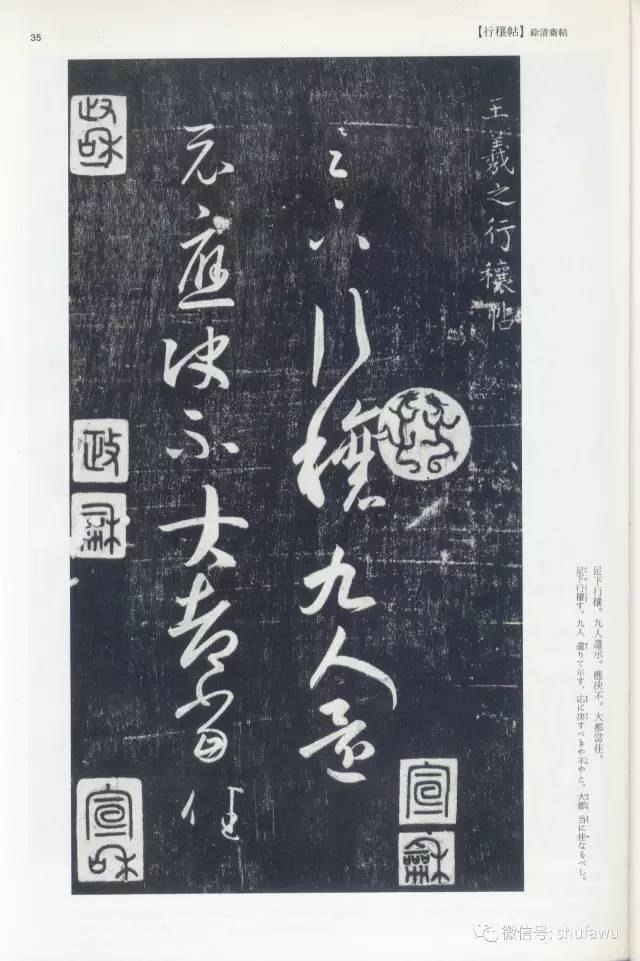 35
【行穰帖】 餘清齋帖
王羲之行穰帖
足下行穰九人還
示應決不大都當佳
政和
政
和
宣和
宣
龢
足下行穰。九人還示。應決不。大都當佳。
足下行穰す。九人 還りて示す、応に決すべきや不やと。大都、当に佳なるべし。
微信号: shufawu